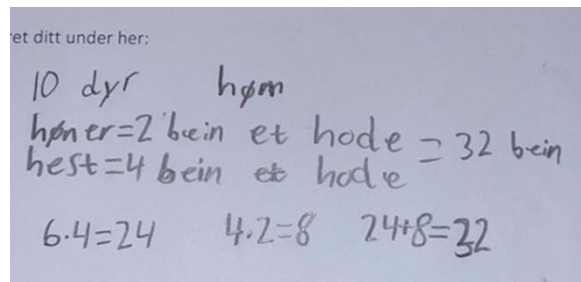 et ditt under her:
10 dyr høm
høner=2 bein et hode = 32 bein
hest=4 bein et hode
6·4=24 4·2=8 24+8=32